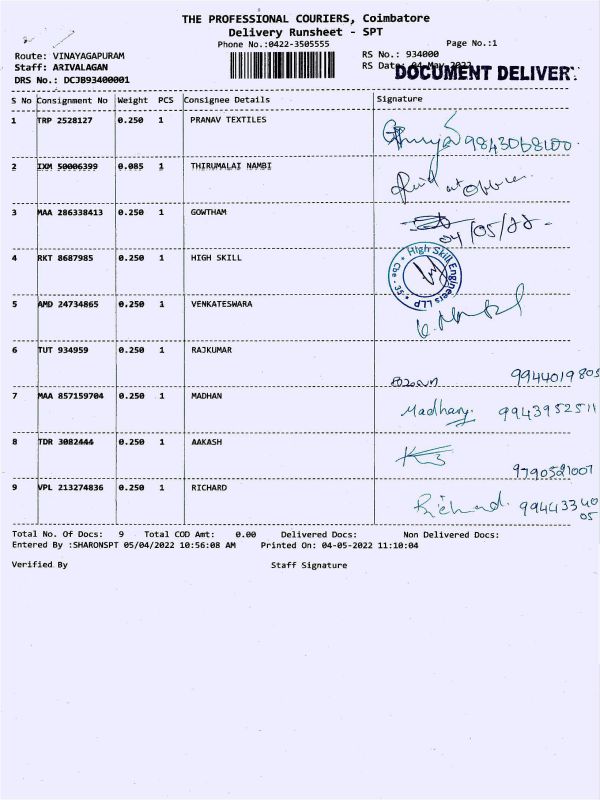 THE PROFESSIONAL COURIERS, Coimbatore
Delivery Runsheet - SPT
Phone No.:0422-3505555
Page No.:1
Route: VINAYAGAPURAM
Staff: ARIVALAGAN
DRS No.: DCJB93400001
RS No.: 934000
RS Date: 04-May-2022
DOCUMENT DELIVER
S No Consignment No Weight PCS Consignee Details Signature
1 TRP 2528127 0.250 1 PRANAV TEXTILES 9843068100
2 IXM 50006399 0.085 1 THIRUMALAI NAMBI
3 MAA 286338413 0.250 1 GOWTHAM 04/05/22
4 RKT 8687985 0.250 1 HIGH SKILL High Skill Engineers LLP Cbe
5 AMD 24734865 0.250 1 VENKATESWARA
6 TUT 934959 0.250 1 RAJKUMAR 9944019805
7 MAA 857159704 0.250 1 MADHAN Madhan 9943952511
8 TDR 3082444 0.250 1 AAKASH 9790521007
9 VPL 213274836 0.250 1 RICHARD Richard 99443340
05
Total No. Of Docs: 9 Total COD Amt: 0.00 Delivered Docs: Non Delivered Docs:
Entered By :SHARONSPT 05/04/2022 10:56:08 AM Printed On: 04-05-2022 11:10:04
Verified By Staff Signature